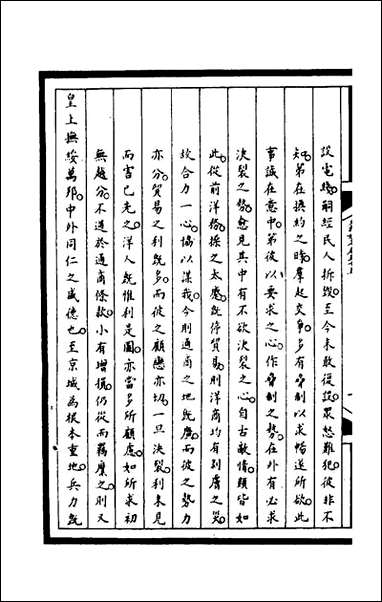 設電綫嗣經民人拆毀至今未敢復設衆怒難犯彼非不
知弟在換約之時羣起交爭多有制以求暢遂所欲此
事誠在意中第彼以要求之心作制之勢在外有必求
決裂之勢愈見其中有不欲決裂之心自古敵情類皆如
此從前洋務操之太蹙既停貿易則洋商均有剝膚之災
故合力一心協以謀我今則通商之地既廣而彼之勢力
亦分貿易之利既多而彼之顧戀亦切一旦決裂利未見
而害已先之洋人既惟利是圖亦當多所顧慮如所求初
無越分不過於通商條款小有增損仍從而羈縻之又
皇上撫綏萬邦中外同仁之盛德也至京城為根本重地兵力既